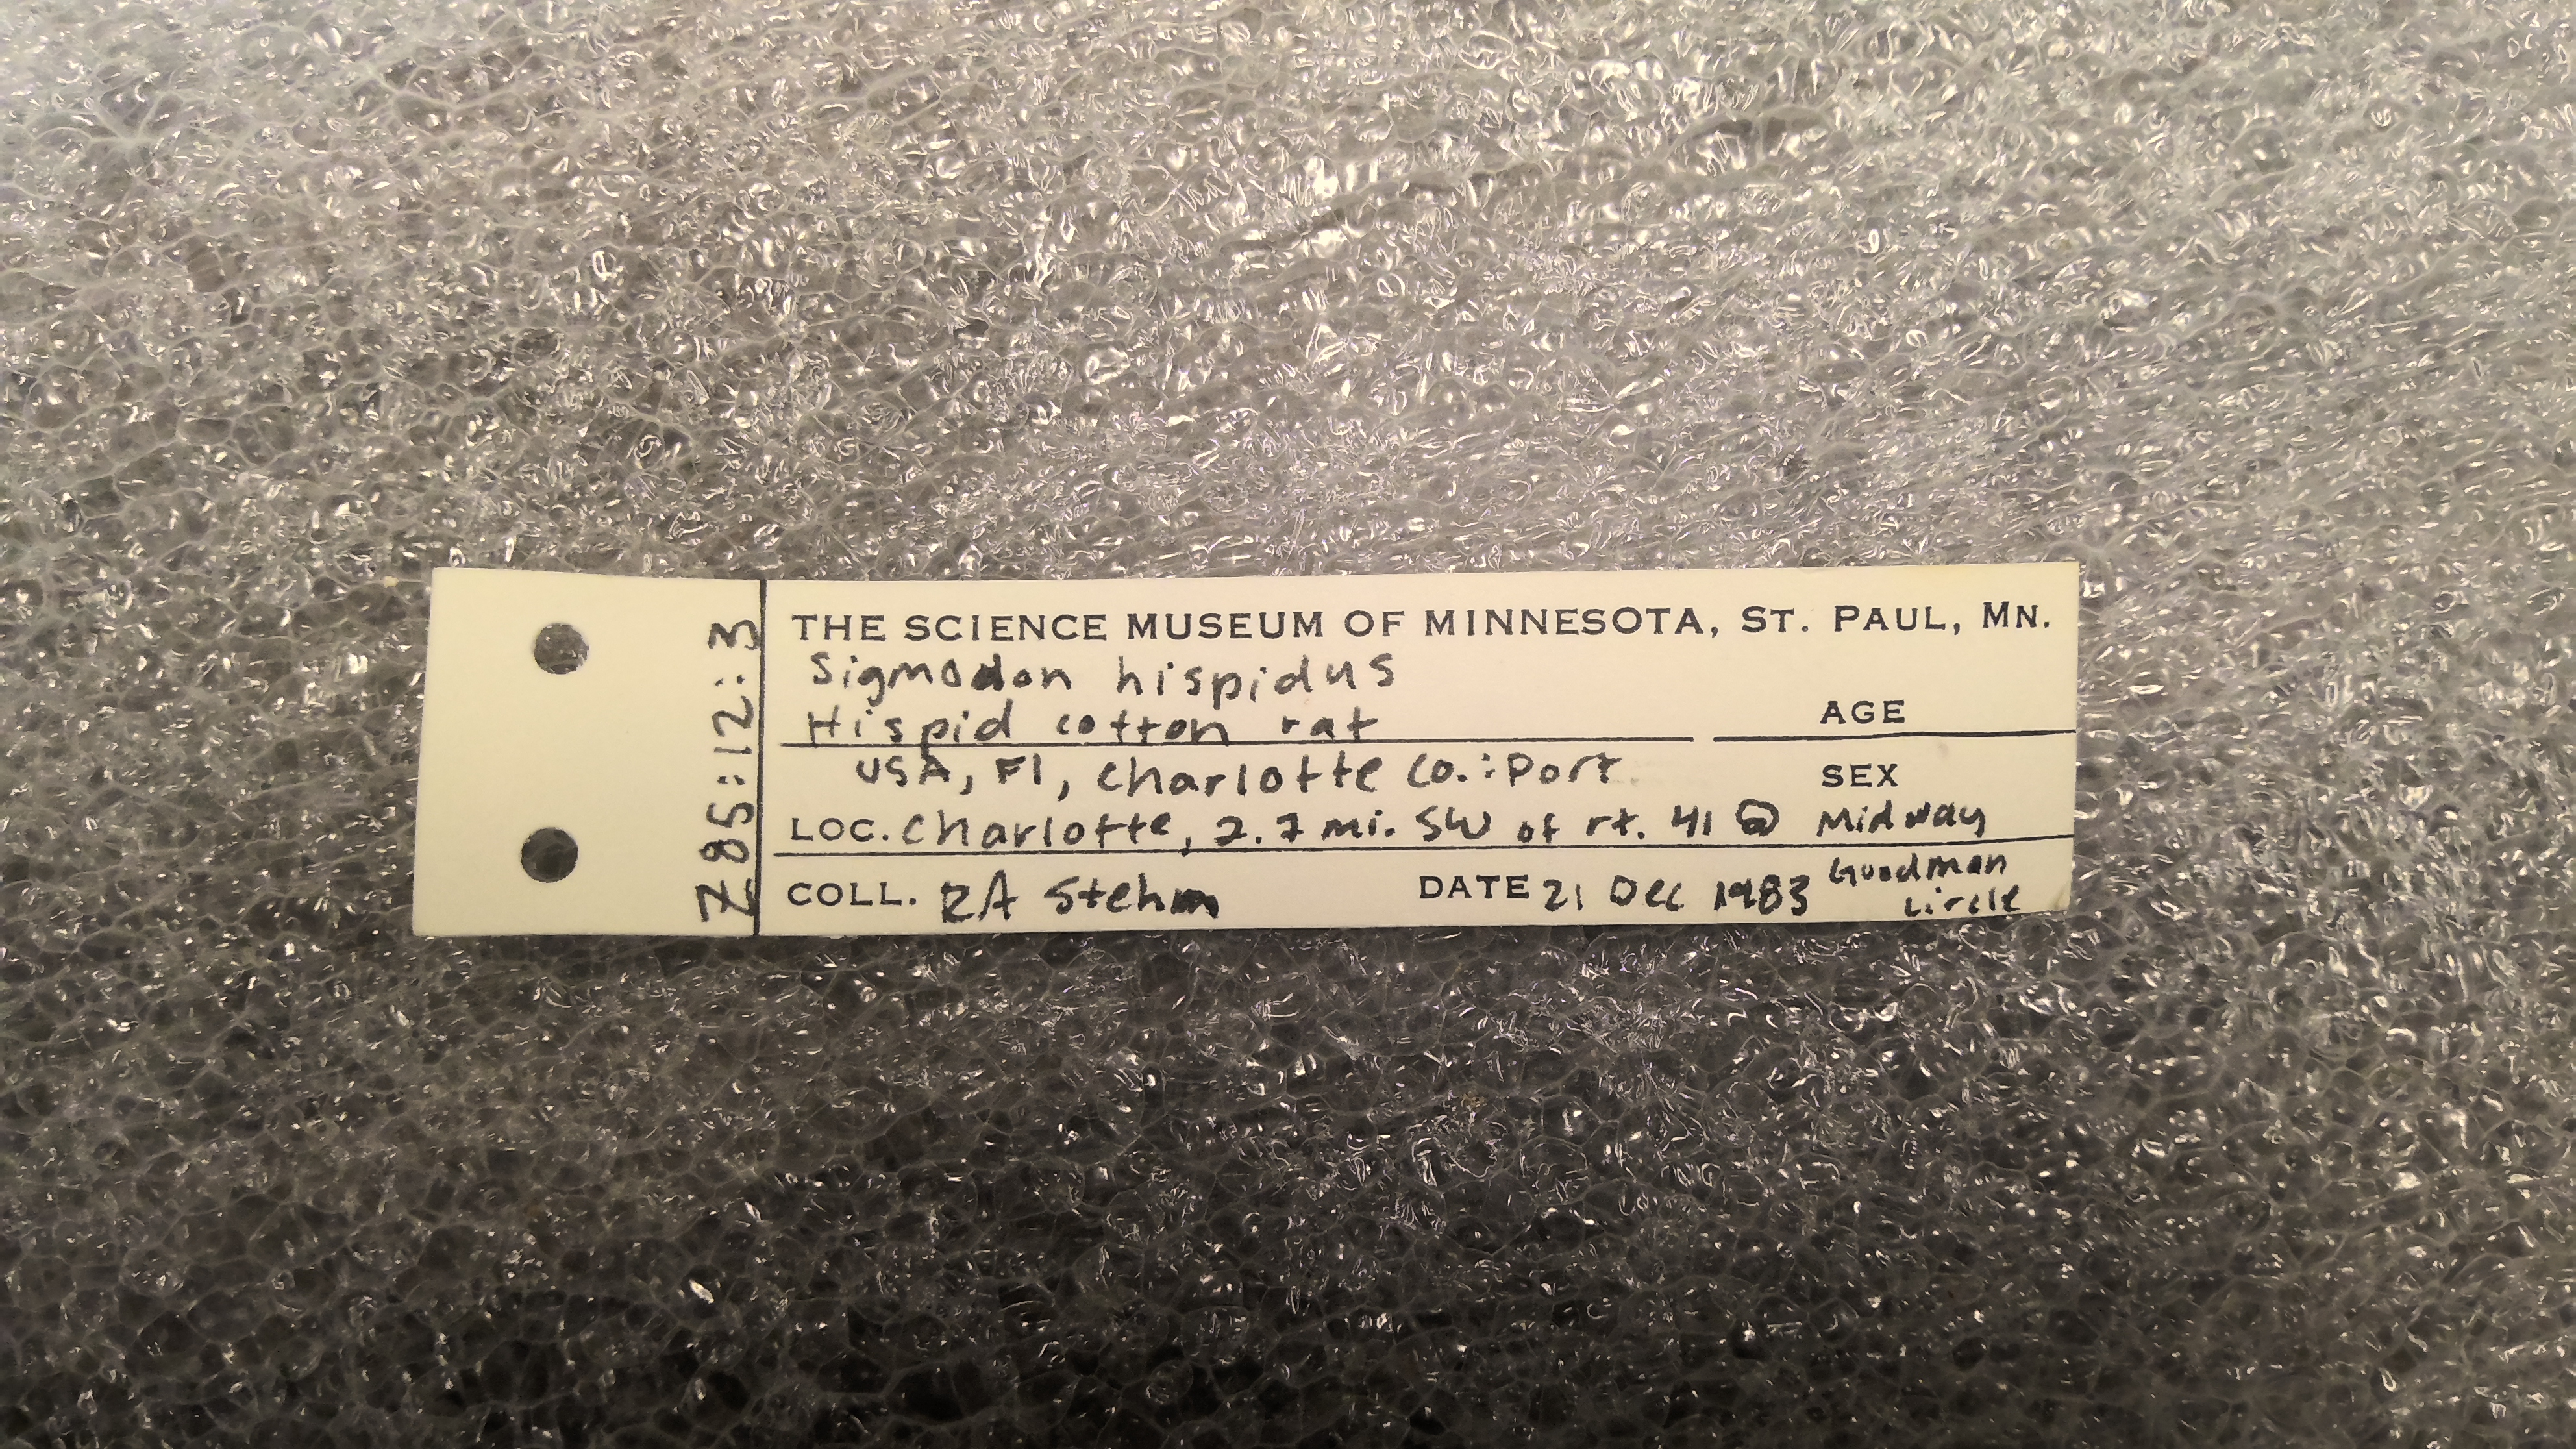 Z85:12:3
THE SCIENCE MUSEUM OF MINNESOTA, ST. PAUL, MN.
Sigmodon hispidus
Hispid cotton rat
AGE
USA, Fl, Charlotte Co.: Port
SEX
LOC. Charlotte, 2.7 mi. SW of rt. 41 @ Midway
Goodman
circle
COLL. RA Stehm
DATE 21 Dec 1983